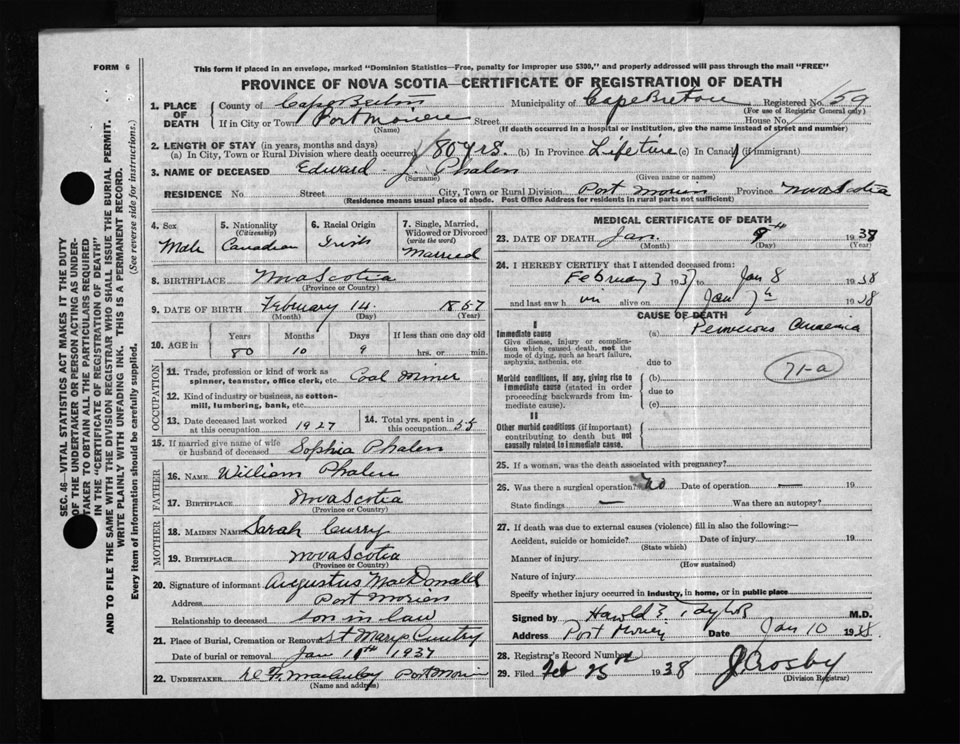 FORM 6
This form if placed in an envelope, marked "Dominion Statistics—Free, penalty for improper use $300," and properly addressed will pass through the mail "FREE"
PROVINCE OF NOVA SCOTIA—CERTIFICATE OF REGISTRATION OF DEATH
1. PLACE OF DEATH County of Cape Breton Municipality of Cape Breton Registered No. 59
(For use of Registrar General only)
If in City or Town Port Morien Street House No.
(Name) (If death occurred in a hospital or institution, give the name instead of street and number)
2. LENGTH OF STAY (in years, months and days)
(a) In City, Town or Rural Division where death occurred 80 yrs. (b) In Province Lifetime (c) In Canada (if immigrant)
3. NAME OF DECEASED Edward J. Phalen
(Surname) (Given name or names)
RESIDENCE No. Street City, Town or Rural Division Port Morien Province Nova Scotia
(Residence means usual place of abode. Post Office Address for residents in rural parts not sufficient)
4. Sex Male
5. Nationality (Citizenship) Canadian
6. Racial Origin Irish
7. Single, Married, Widowed or Divorced (write the word) Married
8. BIRTHPLACE Nova Scotia
(Province or Country)
9. DATE OF BIRTH February 14 1857
(Month) (Day) (Year)
10. AGE in Years Months Days If less than one day old
80 10 9 hrs. or min.
OCCUPATION
11. Trade, profession or kind of work as spinner, teamster, office clerk, etc. Coal Miner
12. Kind of industry or business, as cotton-mill, lumbering, bank, etc.
13. Date deceased last worked at this occupation 1927
14. Total yrs. spent in this occupation 55
15. If married give name of wife or husband of deceased Sophia Phalen
FATHER
16. NAME William Phalen
17. BIRTHPLACE Nova Scotia
(Province or Country)
MOTHER
18. MAIDEN NAME Sarah Curry
19. BIRTHPLACE Nova Scotia
(Province or Country)
20. Signature of informant Augustus MacDonald
Address Port Morien
Relationship to deceased son in law
21. Place of Burial, Cremation or Removal St Marys
Date of burial or removal Jan 11th 1937
22. UNDERTAKER Port Morien
(Name and address)
MEDICAL CERTIFICATE OF DEATH
23. DATE OF DEATH Jan. 9th 1938
(Month) (Day) (Year)
24. I HEREBY CERTIFY that I attended deceased from:
February 3 1937 Jan 8 1938
and last saw h im alive on Jan 7th 1938
CAUSE OF DEATH
I
Immediate cause
Give disease, injury or complication which caused death, not the mode of dying, such as heart failure, asphyxia, asthenia, etc.
(a) Pernicious Anaemia
due to
71-a
Morbid conditions, if any, giving rise to immediate cause (stated in order proceeding backwards from immediate cause).
(b)
due to
(c)
II
Other morbid conditions (if important) contributing to death but not causally related to immediate cause.
25. If a woman, was the death associated with pregnancy?
26. Was there a surgical operation? No Date of operation — 19
State findings — Was there an autopsy?
27. If death was due to external causes (violence) fill in also the following:—
Accident, suicide or homicide? Date of injury 19
(State which)
Manner of injury
(How sustained)
Nature of injury
Specify whether injury occurred in industry, in home, or in public place
Signed by Harold M.D.
Address Port Morien Date Jan 10 1938.
28. Registrar's Record Number
29. Filed Feb 25th 1938 J Crosby
(Division Registrar)
SEC. 46—VITAL STATISTICS ACT MAKES IT THE DUTY
OF THE UNDERTAKER OR PERSON ACTING AS UNDER-
TAKER TO OBTAIN ALL THE PARTICULARS REQUIRED
IN THE "CERTIFICATE OF REGISTRATION OF DEATH"
AND TO FILE THE SAME WITH THE DIVISION REGISTRAR WHO SHALL ISSUE THE BURIAL PERMIT.
WRITE PLAINLY WITH UNFADING INK. THIS IS A PERMANENT RECORD.
Every item of information should be carefully supplied. (See reverse side for instructions.)